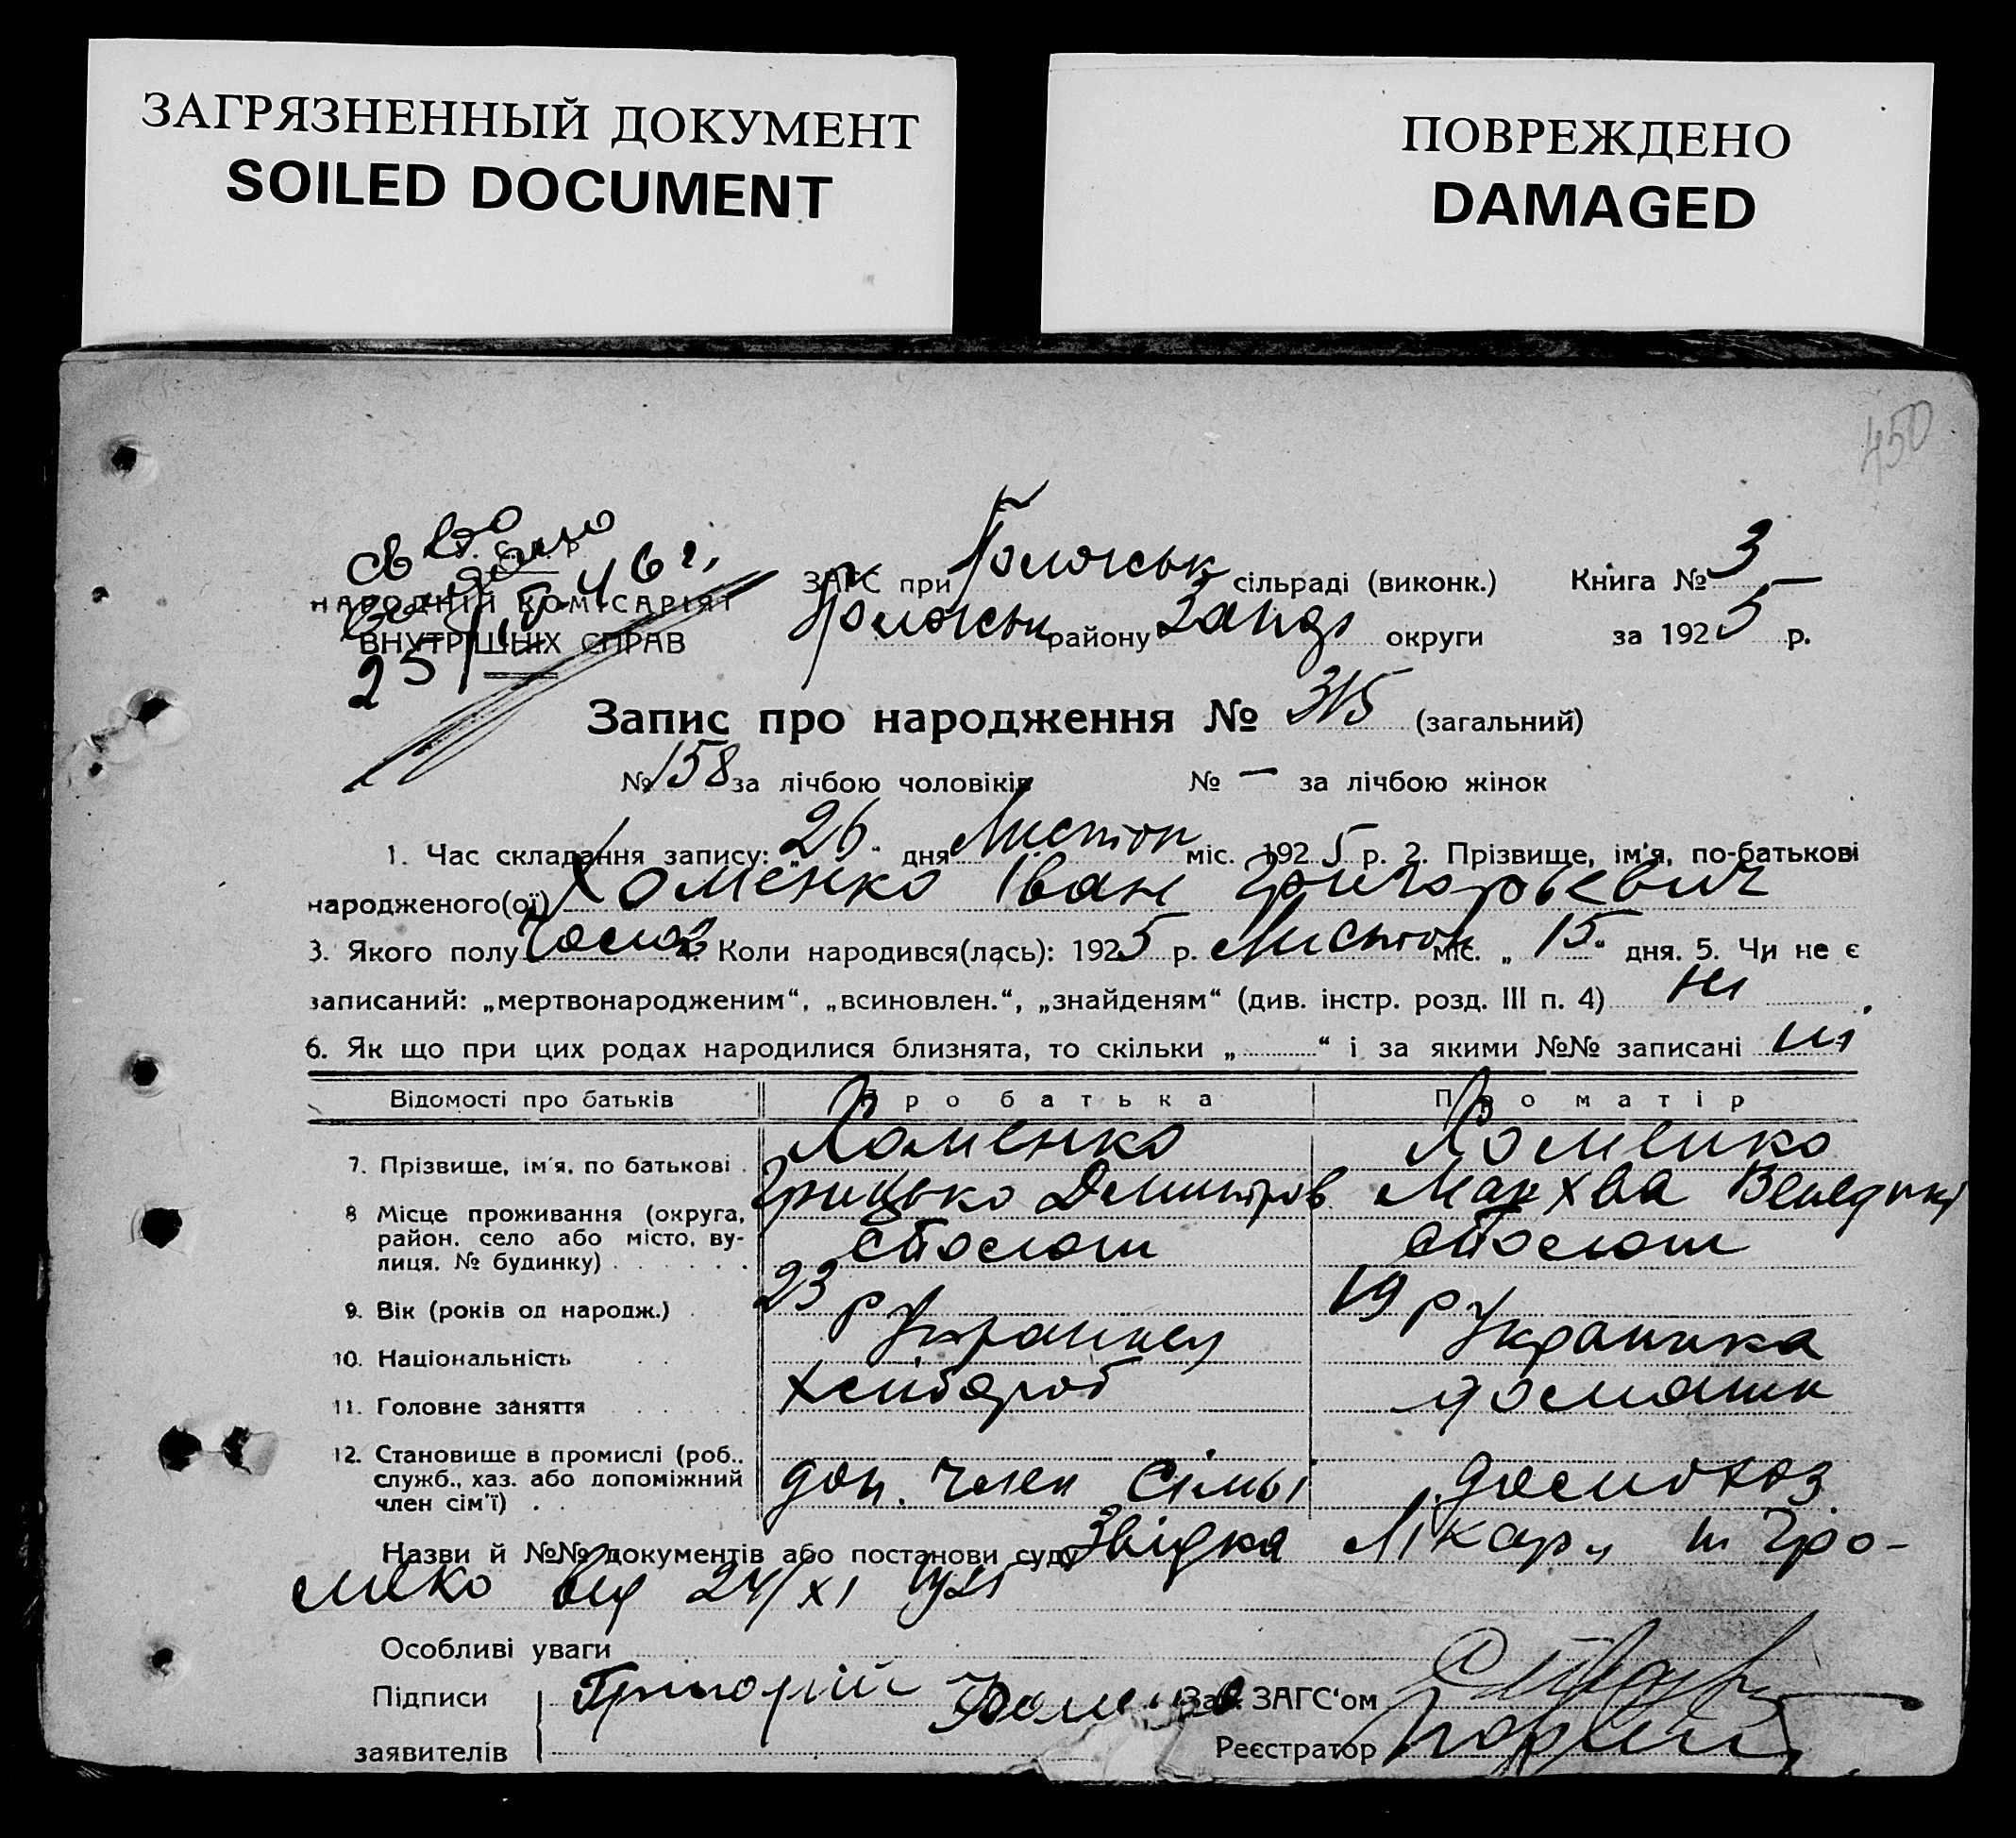 ЗАГРЯЗНЕННЫЙ ДОКУМЕНТ
SOILED DOCUMENT
ПОВРЕЖДЕНО
DAMAGED
450
НАРОДНІЙ КОМІСАРІЯТ
ВНУТРІШНІХ СПРАВ
25 46 г.
ЗАГС при сільраді (виконк.) Книга № 3
району округи за 1925 р.
Запис про народження № 315 (загальний)
№ 158 за лічбою чоловіків № — за лічбою жінок
1. Час складання запису: „26" дня Листоп міс. 1925 р. 2. Прізвище, ім'я, по-батькові
народженого(ої) Хоменко Іван Григорьевич
3. Якого полу Чолов. Коли народився(лась): 1925 р. Листоп міс. „ 15. дня. 5. Чи не є
записаний: „мертвонародженим“, „всиновлен.“, „знайденям“ (див. інстр. розд. III п. 4) ні
6. Як що при цих родах народилися близнята, то скільки „ “ і за якими №№ записані ні
Відомості про батьків Про батька Про матір
7. Прізвище, ім'я, по батькові Хоменко Хоменко
Грицько Дмитров Мархва
8 Місце проживання (округа, район, село або місто, вулиця, № будинку)
9. Вік (років од народж.) 23 р 19 р
10. Національність Украинец Украинка
11. Головне заняття Хлібороб домашн
12. Становище в промислі (роб., служб., хаз. або допоміжний член сім'ї) доп. член сімьі домохоз
Назви й №№ документів або постанови суду Звідка Лікаря Гро-
мико від 24/XI 1925
Особливі уваги
Підписи Григорій Хоменко Зав. ЗАГС'ом
заявителів Реєстратор